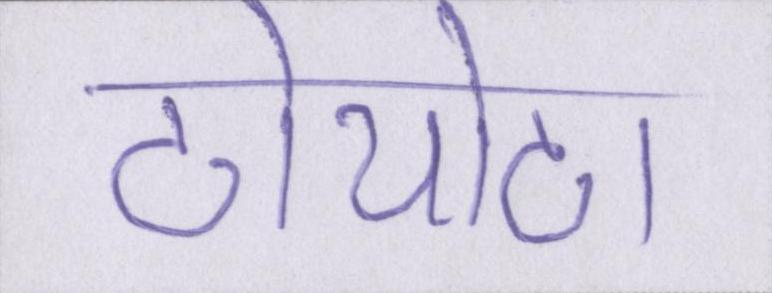 टोयोटा